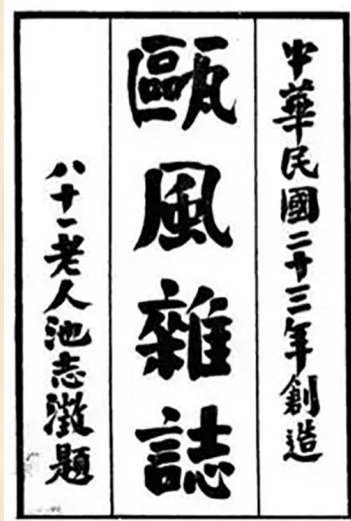 中華民國二十三年創造
甌風雜誌
八十一老人池志澂題